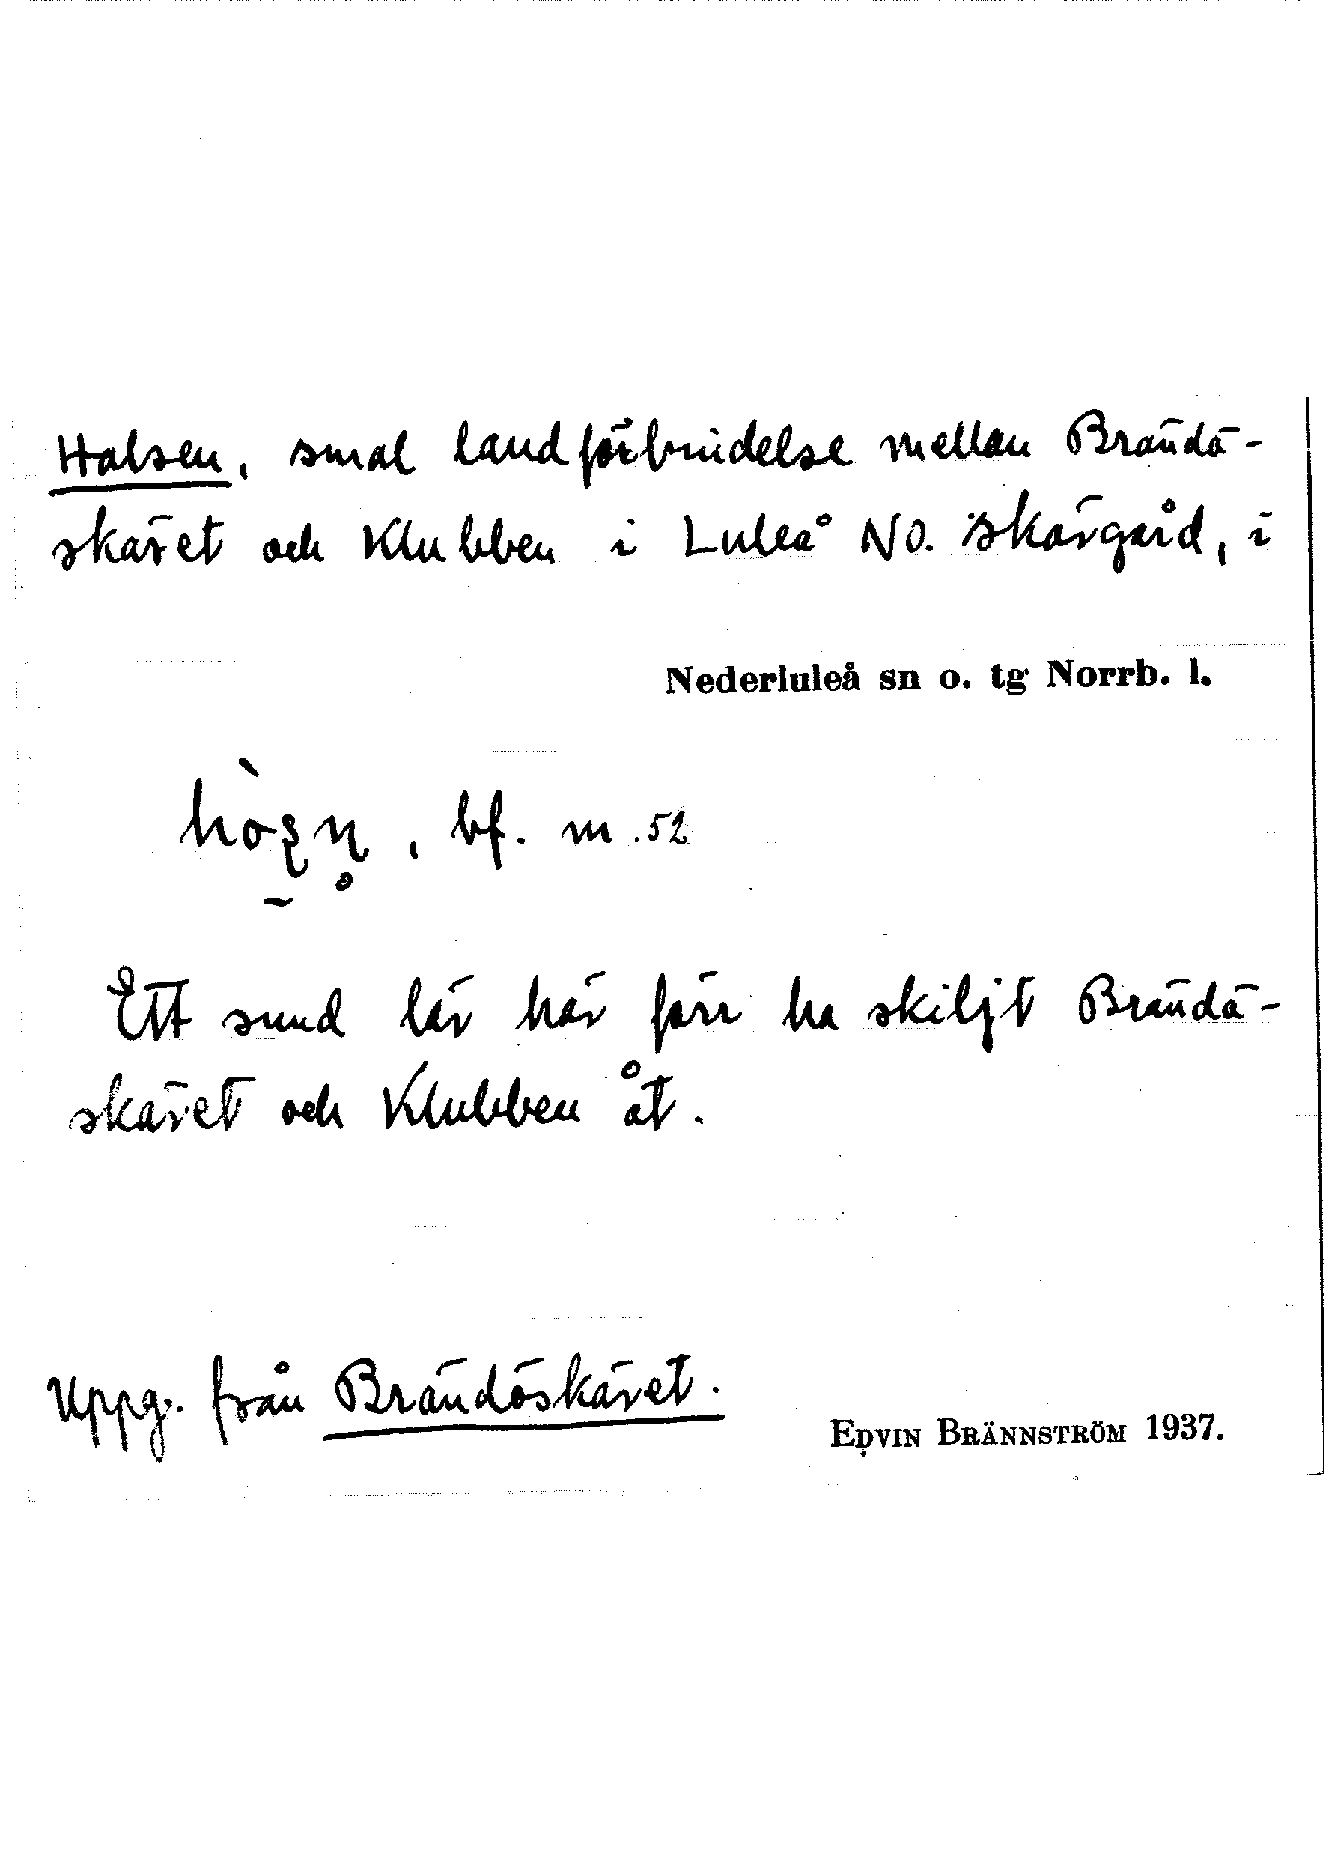 Halsen, smal landförbindelse mellan Brändö-
skäret och Klubben i Luleå NO. skärgård, i
Nederluleå sn o. tg Norrb. l.
, bf. m. 52
Ett sund lär här förr ha skiljt Brändö-
skäret och Klubben åt.
Uppg. från Brändöskäret.
EDVIN BRÄNNSTRÖM 1937.